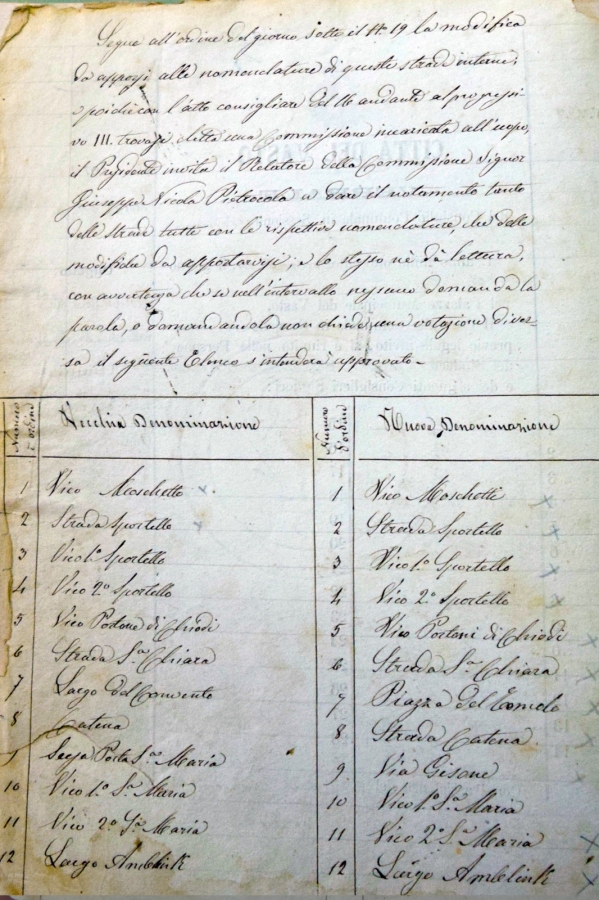 Segue all'ordine del giorno sotto il N.º 19 la modifica
da apporsi alle nomenclature di queste strade interne;
e poiché con l'atto consigliare del 16 andante al progressi-
vo III. trovasi eletta una Commissione incaricata all'uopo,
il Presidente invita il Relatore della Commissione Signor
Giuseppe Nicola Pietrocola a dare il notamento tanto
delle strade tutte con le rispettive nomenclature, che delle
modifiche da apportarvisi; e lo stesso nè dà lettura,
con avvertenza che se nell'intervallo nessuno domanda la
parola, o domandandola non chiede una votazione diver-
sa il seguente Elenco s'intenderà approvato.
Numero d'ordine Vecchia Denominazione Numero d'ordine Nuova Denominazione
1 Vico Moschetto 1 Vico Moschetti
2 Strada Sportello 2 Strada Sportello
3 Vico 1.º Sportello 3 Vico 1.º Sportello
4 Vico 2.º Sportello 4 Vico 2.º Sportello
5 Vico Portone di Chiodi 5 Vico Portoni di Chiodi
6 Strada S.ª Chiara 6 Strada S.ª Chiara
7 Largo del Convento 7 Piazza del
8 Catena 8 Strada Catena
9 Porta S.ª Maria 9 Via Gisone
10 Vico 1.º S.ª Maria 10 Vico 1.º S.ª Maria
11 Vico 2.º S.ª Maria 11 Vico 2.º S.ª Maria
12 Largo Amblink 12 Largo Amblink